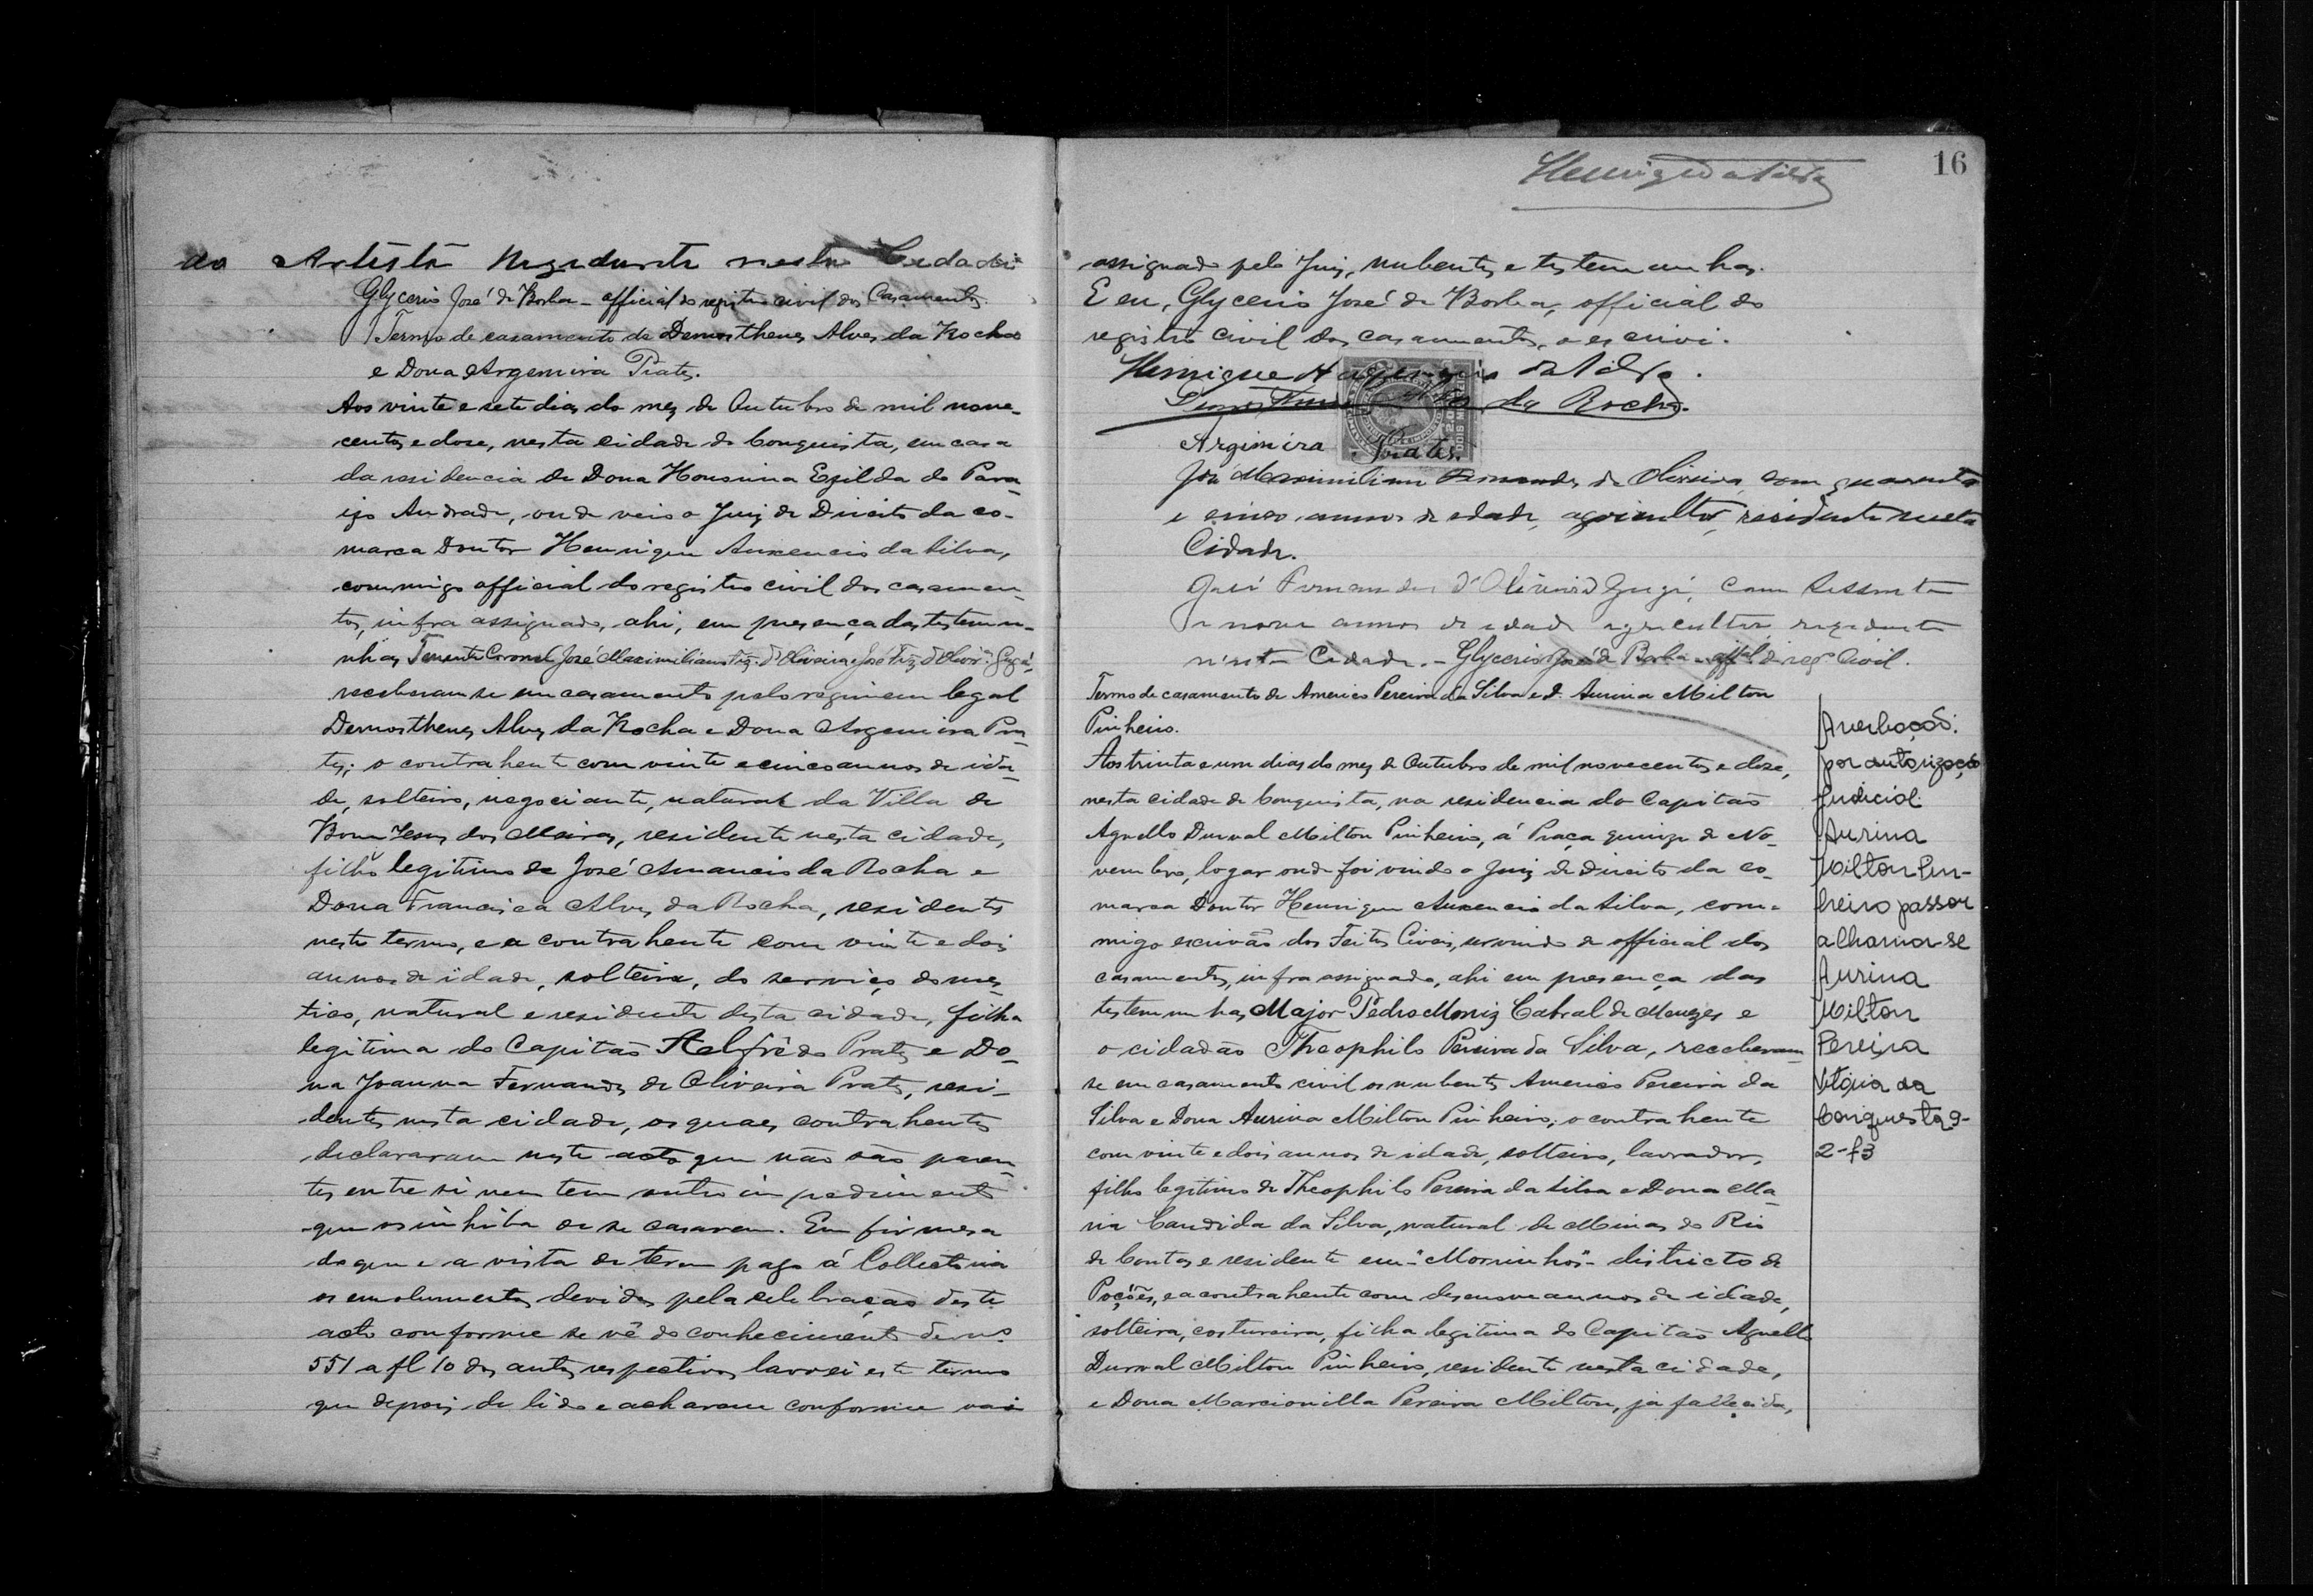 da Artista Rezidente nesta Cidade
Glycerio José de Borba - official do registro civil dos Casamentos.
Termo de casamento de Demosthenes Alves da Rocha
e Dona Argemira Prates.
Aos vinte e sete dias do mez de Outubro de mil nove-
centos e doze, nesta cidade de Conquista, em casa
da residencia de Dona Honorina Ezilda do Para-
izo Andrade, onde veio o Juiz de Direito da co-
marca Doutor Henrique Auxencio da Silva,
commigo official do registro civil dos casamen-
tos, infra assignado, ahi, em presença das testemu-
nhas Tenente Coronel José Maximiliano Frz. d'Oliveira e José Frz. d'Olivrª. Gugé,
receberam se em casamento pelo regimem legal
Demosthenes Alves da Rocha e Dona Argemira Pra-
tes; o contrahente com vinte e cinco annos de ida-
de, solteiro, negociante, natural da Villa de
Bom Jesus dos Meiras, residente nesta cidade,
filho legitimo de José Amancio da Rocha e
Dona Francisca Alves da Rocha, residentes
neste termo, e a contrahente com vinte e dois
annos de idade, solteira, do serviço domes-
tico, natural e residente desta cidade, filha
legitima do Capitão Alfrêdo Prates e Do-
na Joanna Fernandes de Oliveira Prates, resi-
dentes nesta cidade, os quaes contrahentes
declararam neste acto que não são paren-
tes entre si nem tem outro impedimento
que os inhiba de se casarem. Em firmesa
do que e a vista de terem pago á Collectoria
os emolumentos devidos pela celebração deste
acto conforme se vê do conhecimento de nº
551 a fl 10 dos autos respectivos lavrei este termo
que depois de lido e acharam conforme vai
16
assignado pelo Juiz, nubentes e testemunhas.
E eu, Glycerio José de Borba, official do
registro civil dos casamentos, o escrivi.
Henrique Auxencio da Silva.
Demosthenes Alves da Rocha.
Argimira Prates.
José Maximiliano Fernandes de Oliveira, com quarenta
e cinco annos de edade, agricultor, residente nesta
Cidade.
José Fernandes d'Oliveira Gugé, com sessenta
e nove annos de edade agricultor rezidente
n'esta Cidade. - Glycerio José de Borba - offal. do regº Civil.
Termo de casamento de Americo Pereira da Silva e D. Aurina Milton
Pinheiro.
Aos trinta e um dias do mez de Outubro de mil novecentos e doze,
nesta cidade de Conquista, na residencia do Capitão
Agnello Durval Milton Pinheiro, á Praça quinze de No-
vembro, logar onde foi vindo o Juiz de Direito da co-
marca Doutor Henrique Auxencio da Silva, com-
migo escrivão dos Feitos Civeis, servindo de official dos
casamentos, infra assignado, ahi em presença das
testemunhas Major Pedro Moniz Cabral de Menezes e
o cidadão Theophilo Pereira da Silva, receberam-
se em casamento civil os nubentes Americo Pereira da
Silva e Dona Aurina Milton Pinheiro; o contrahente
com vinte e dois annos de idade, solteiro, lavrador,
filho legitimo de Theophilo Pereira da Silva e Dona Ma-
ria Candida da Silva, natural de Minas do Rio
de Contas e residente em "Morrinhos" districto de
Poções, e a contrahente com desenove annos de idade,
solteira, costureira, filha legitima do Capitão Agnello
Durval Milton Pinheiro, residente nesta cidade,
e Dona Marcionilla Pereira Milton, já fallecida,
Averbação:
por autorização
Judicial.
Aurina
Milton Pin-
heiro passou
a chamar-se
Aurina
Milton
Pereira
Vitória da
Conquista 9-
2-73